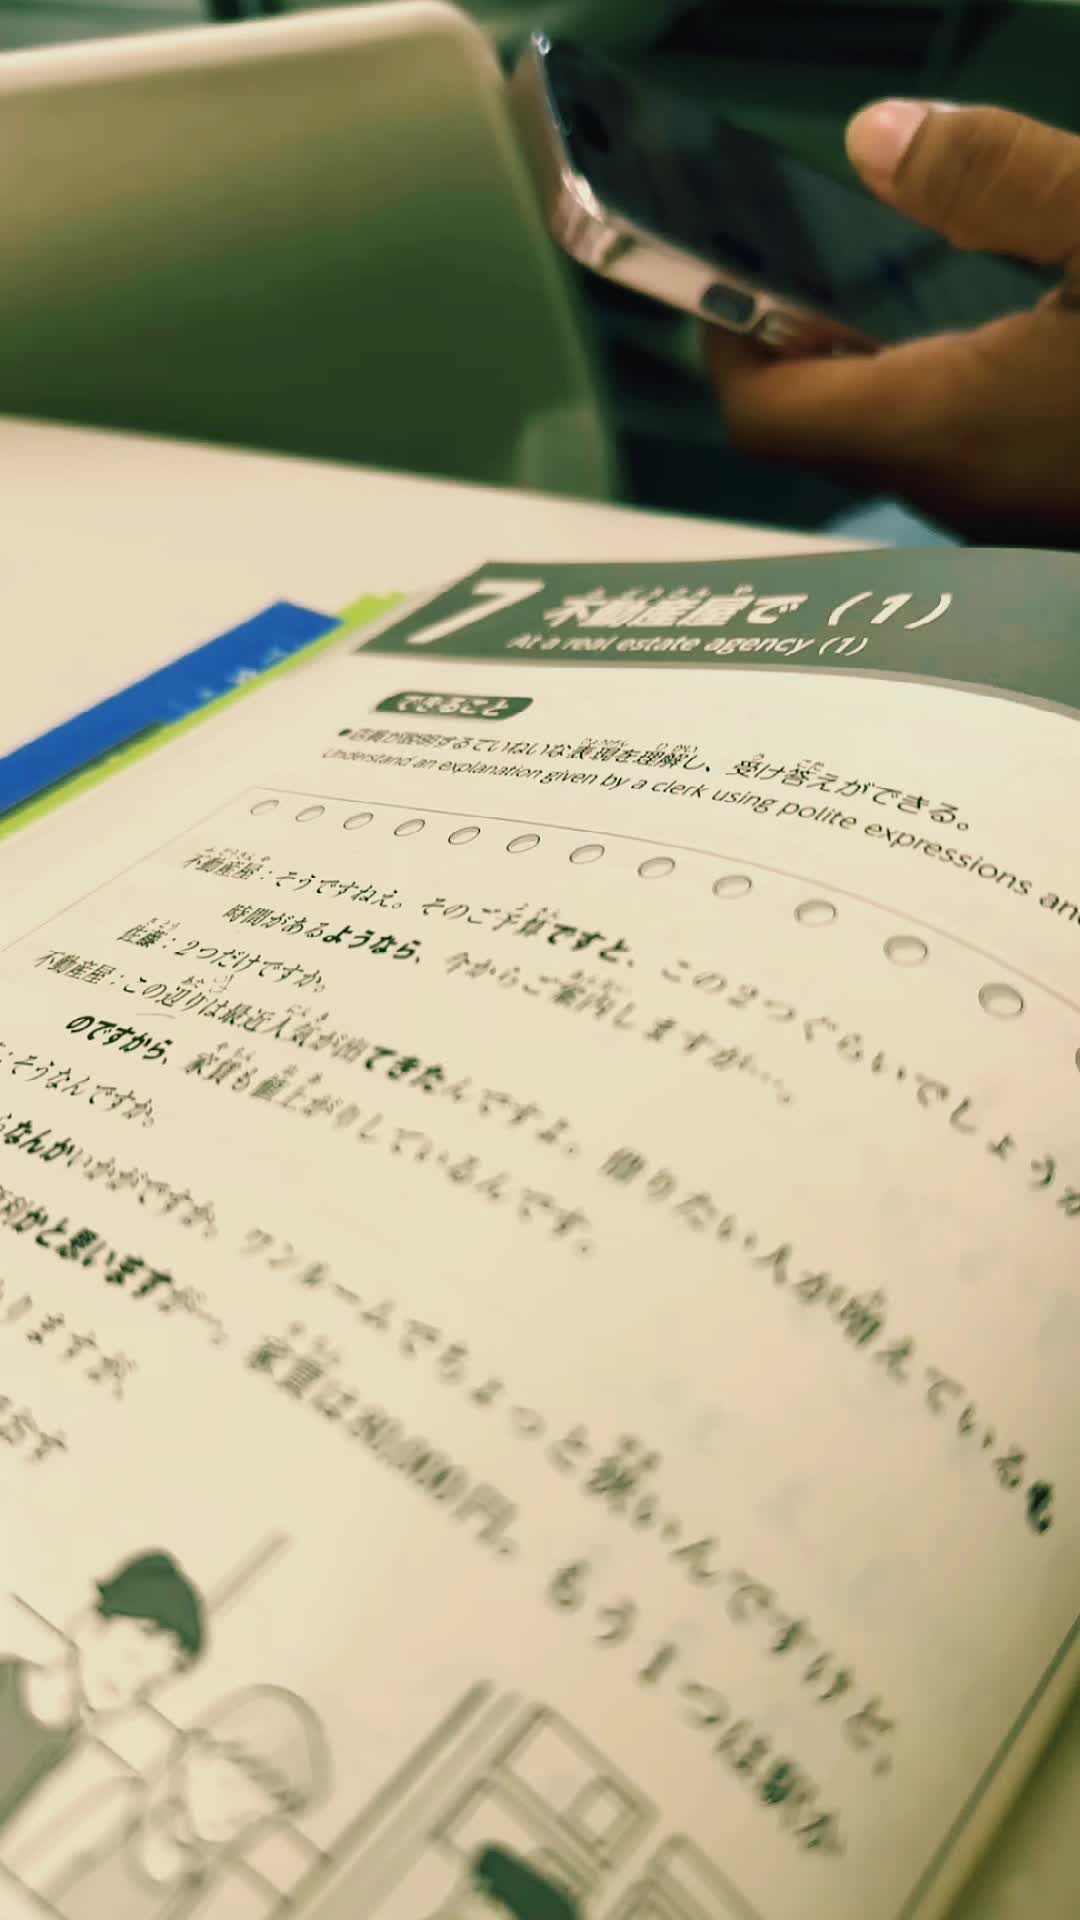 7 不動産屋で（1）
At a real estate agency (1)
できること
●店員が説明するていねいな表現を理解し、受け答えができる。
Understand an explanation given by a clerk using polite expressions and
不動産屋：そうですねえ。そのご予算ですと、この2つぐらいでしょうか
時間があるようなら、今からご案内しますが…。
佐藤：2つだけですか。
不動産屋：この辺りは最近人気が出てきたんですよ。借りたい人が増えているも
のですから、家賃も値上がりしているんです。
：そうなんですか。
なんかいかがですか。ワンルームでちょっと狭いんですけど、
かと思いますが…。家賃は80,000円。もう1つは駅か
りますが、